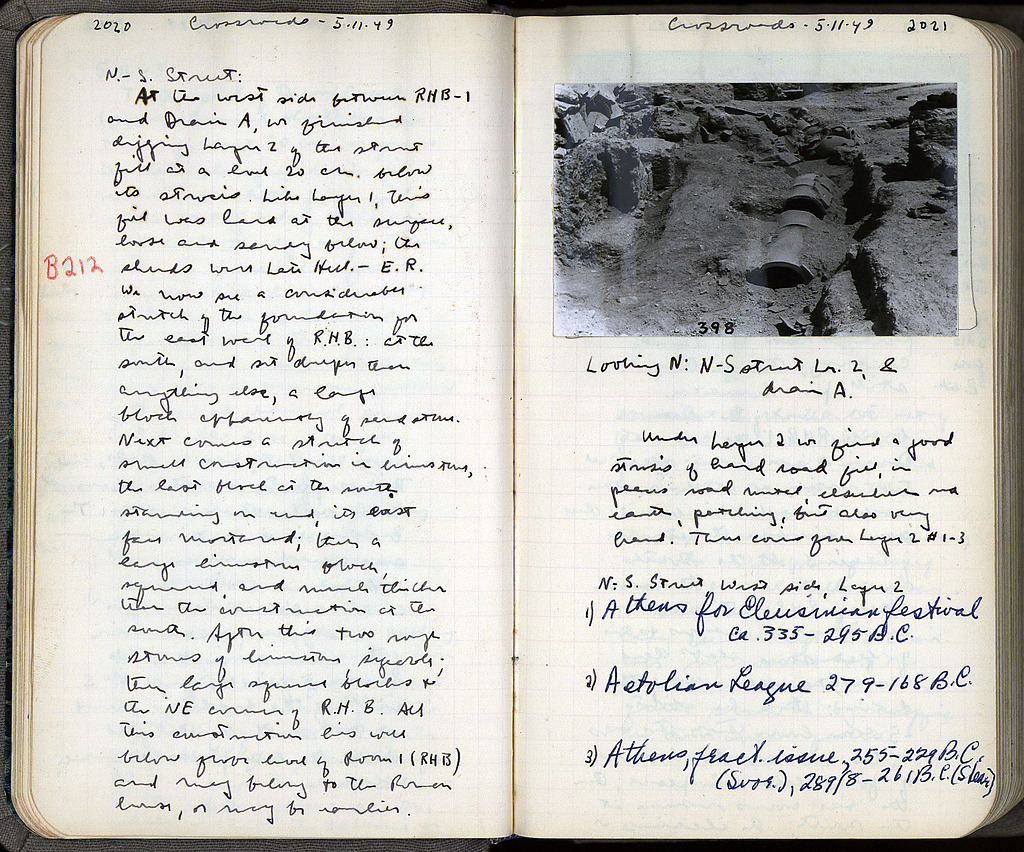 2020 Crossroads - 5.11.49
N.-S. Street:
At the west side between RHB-1
and Drain A, we finished
digging Layer 2 of the street
fill at a level 20 cm. below
its strosis. Like Layer 1, this
fill was hard at the surface,
loose and sandy below; the
B212
sherds were Late Hell. - E.R.
We now see a considerable
stretch of the foundation for
the east wall of R.H.B.: at the
south, and set deeper than
anything else, a large
block apparently of sandstone.
Next comes a stretch of
small construction in limestone,
the last block at the north
standing on end, its east
face mortared; then a
large limestone block,
squared, and much thicker
than the construction at the
south. After this two rough
stones of limestone
then large square blocks to
the NE corner of R.H.B. All
this construction lies well
below floor level of Room 1 (RHB)
and may belong to the Roman
house, or may be earlier.
Crossroads - 5.11.49 2021
398
Looking N: N-S street Lr. 2, &
drain A.
Under Layer 2 we find a good
strosis of hard road fill, in
places road metal, elsewhere red
earth, patching, but also very
hard. Three coins from Layer 2 #1-3
N-S. Street west side, Layer 2
1) Athens for Eleusinian festival
ca. 335-295 B.C.
2) Aetolian League 279-168 B.C.
3) Athens, fract. issue, 255-229 B.C.
(Svor.), 289/8-261 B.C.